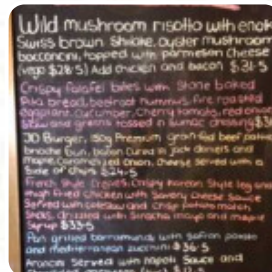 Wild mushroom risotto with enok
Swiss brown, Shitake, oyster mushroom
bocconcini, topped with parmesan cheese
(vego $28.5) Add chicken and bacon $31.5
Crispy falafel bites with stone baked
Pita bread, beetroot hummus, fire roasted
eggplant, cucumber, cherry tomato, red onion
and greens tossed in sumac dressing
JD Burger, 180g Premium grain fed beef pattie
brioche bun, bacon cured in jack daniels and
maple, caramelized onion, cheese served with a
side of chips $24.5
French style Greens, crispy Korean Style leg and
thigh Fried chicken with Smokey cheese Sauce
Served with coleslaw and crisp potato match
sticks, drizzled with Siracha mayo and maple
Syrup $33.5
Pan grilled barramundi with safron potato
and mediterranean zucchini $36.5
Arancini served with napoli Sauce and